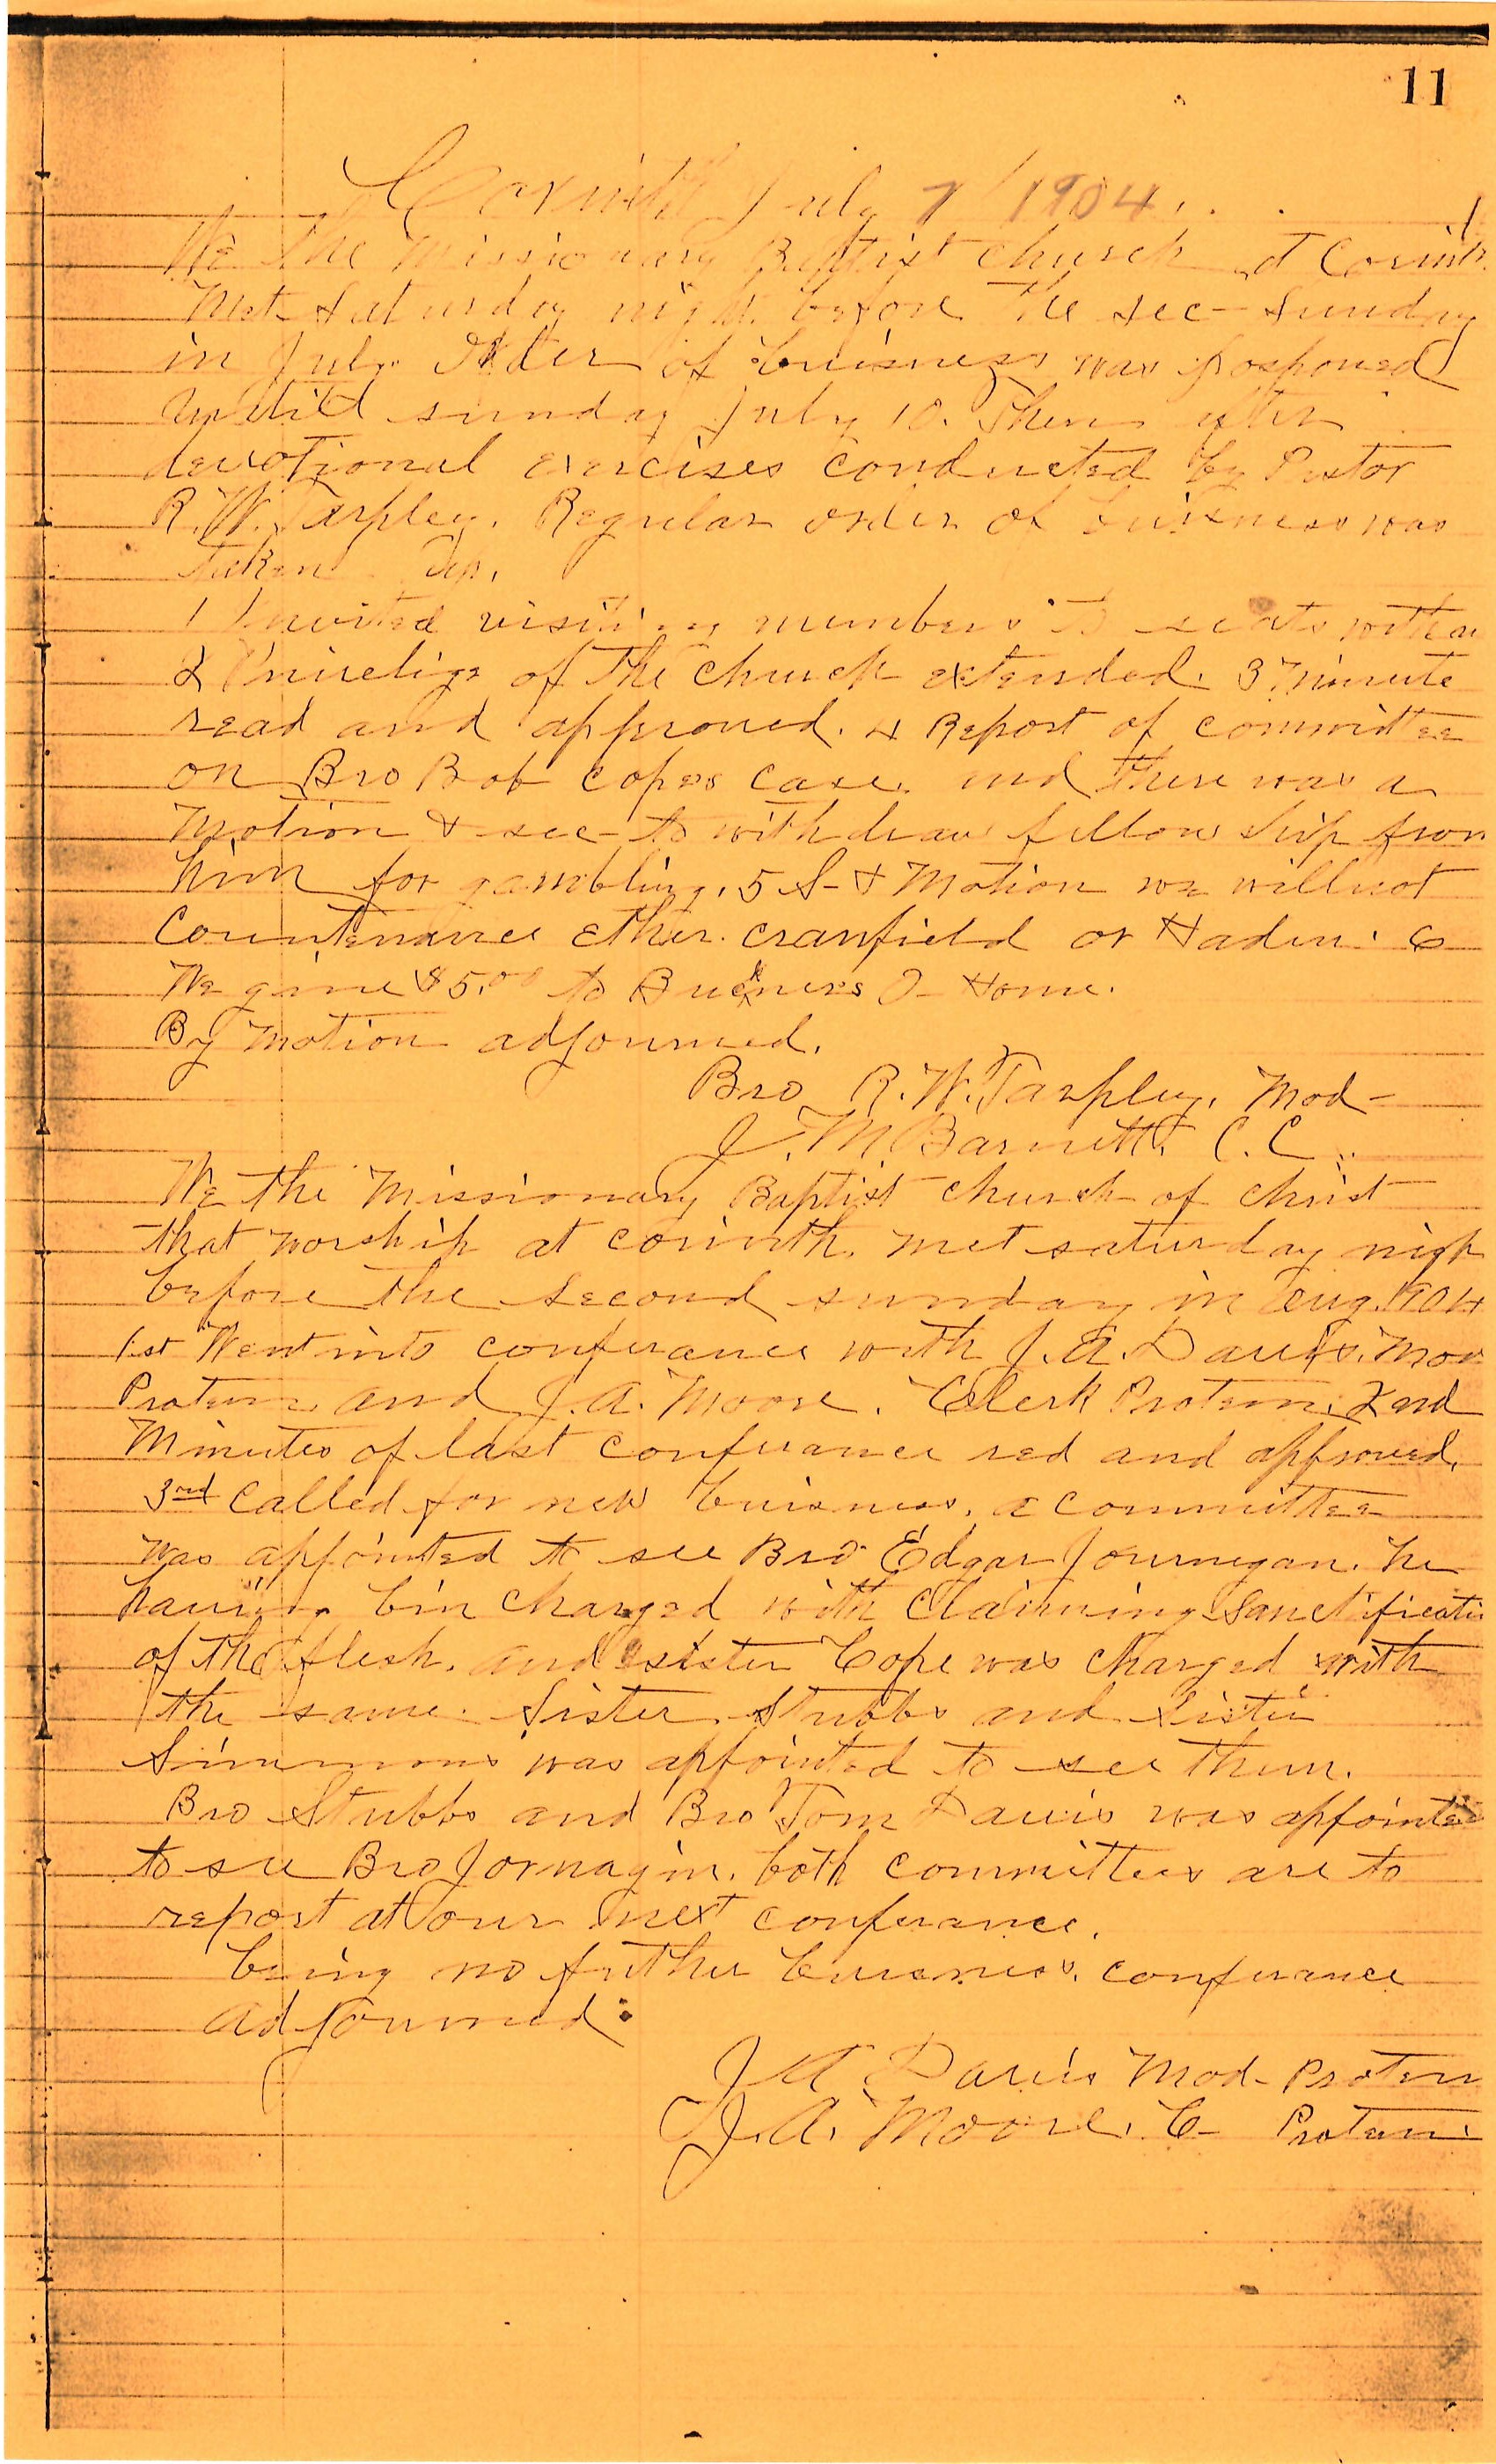 11
Corinth July 7 / 1904.
We the Missionary Baptist church at Corinth
Met Saturday night before the sec- Sunday
in July Order of buisness was posponed
untill sunday July 10. Then after
devotional exercises conducted by Pastor
R. W. Tarpley. Regular order of buisness was
taken up.
1 Invited visiting members to seats with us
2 Privelige of the church extended. 3 minute
read and approved. 4 Report of committee
on Bro Bob Copes case. and there was a
Motion & sec- to withdraw fellow ship from
him for gambling. 5 S- & Motion we will not
Countenance Ether. Cranfield or Haden. 6
We give $5.00 to Buckners O- Home.
By motion adjourned.
Bro R. W. Tarpley. Mod-
J. M Barnett. C. C.
We the Missionary Baptist church of Christ
that worship at Corinth. met saturday nigh
before the second sunday in Aug. 1904
1st Went into conferance with J. A. Davis. Mod
Protem and J. A. Moore. Clerk Protem. 2nd
Minutes of last conferance red and approved.
3rd Called for new buisness. a committee
was appointed to see Bro Edgar Journegan. he
having bin charged with Claiming Sanctificatio
of the flesh. and sister Cope was charged with
the same. Sister Stubbs and Sister
Simmons was appointed to see them.
Bro Stubbs and Bro Tom Davis was appointed
to see Bro Jornagin. both committees are to
report at our next conferance.
being no futher buisness. conferance
adjourned:
J A Davis Mod- Protem
J. A. Moore. C- Protem.